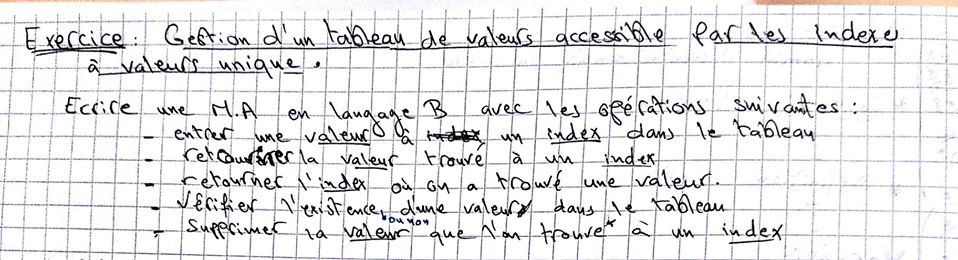 Exercice : Gestion d'un tableau de valeurs accessible par les indexe
à valeurs unique.
Ecrire une M.A en langage B avec les opérations suivantes :
- entrer une valeur à un index dans le tableau
- retourner la valeur trouvé à un index
- retourner l'index où on a trouvé une valeur.
- Vérifier l'existence ou non d'une valeur dans le tableau
- Supprimer la valeur que l'on trouve à un index